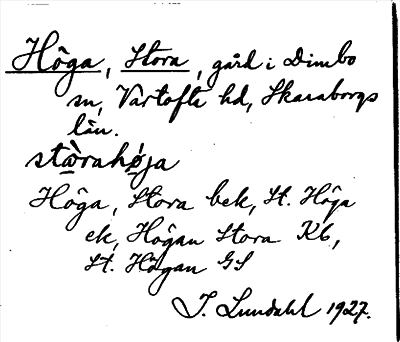 Höga, Stora, gård i Dimbo
sn, Vartofta hd, Skaraborgs
län.
stὰ̱rahö̱́ja
Höga, Stora bek, St. Höga
ek, Högan Stora Kb,
St. Högan GS
J. Lundahl 1927.